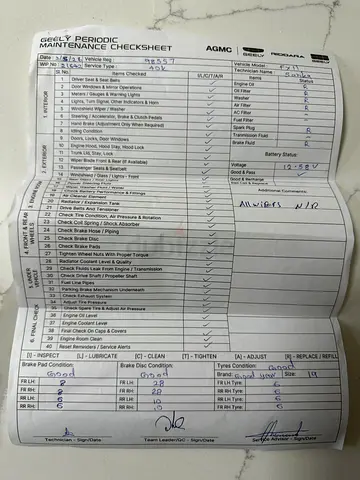 GEELY PERIODIC
MAINTENANCE CHECKSHEET
AGMC GEELY
Date: Vehicle Reg: 98557 Vehicle Model:
WIP No: Service Type: 45K Technician Name:
SL No. Items Checked I/L/C/T/A/R Items Status
1. INTERIOR
1 Driver Seat & Seat Belts Engine Oil R
2 Door Windows & Mirror Operations Oil Filter R
3 Meters / Gauges & Warning Lights Washer R
4 Lights, Turn Signal, Other Indicators & Horn Air Filter R
5 Windshield Wiper / Washer AC Filter
6 Steering / Accelerator, Brake & Clutch Pedals Fuel Filter
7 Hand Brake (Adjustment Only When Required) Spark Plug R
8 Idling Condition Transmission Fluid
2. EXTERIOR
9 Doors, Locks, Door Windows Brake Fluid R
10 Engine Hood, Hood Stay, Hood Lock Battery Status
11 Trunk Lid, Stay, Lock
12 Wiper Blade Front & Rear (If Available) Voltage
13 Passenger Seats & Seatbelt Good & Pass
14 Windshield / Glass / Lights - Front Good & Recharge
17 Water Washer Fluid / Water
18 Check Battery Performance & Fittings Additional Comments:
19 Air Cleaner Element
20 Radiator / Expansion Tank
21 Drive Belts And Tensioner
4. FRONT & REAR WHEELS
22 Check Tire Condition, Air Pressure & Rotation
23 Check Coil Spring / Shock Absorber
24 Check Brake Hose / Piping
25 Check Brake Disc
26 Check Brake Pads
27 Tighten Wheel Nuts With Proper Torque
28 Radiator Coolant Level & Quality
29 Check Fluids Leak Front Engine / Transmission
30 Check Drive Shaft / Propeller Shaft
31 Fuel Line Pipes
32 Parking Brake Mechanism Underneath
33 Check Exhaust System
34 Adjust Tire Pressure
35 Check Spare Tire & Adjust Air Pressure
6. FINAL CHECK
36 Engine Oil Level
37 Engine Coolant Level
38 Final Check On Caps & Covers
39 Engine Room Clean
40 Reset Reminders / Service Alerts
[I] - INSPECT [L] - LUBRICATE [C] - CLEAN [T] - TIGHTEN [A] - ADJUST [R] - REPLACE / REFILL
Brake Pad Condition: Good Brake Disc Condition: Good Tyres Condition: Good
Brand: Good year Size: 19
FR LH: 8 FR LH: 28 FR LH Tyre: 6
FR RH: 8 FR RH: 28 FR RH Tyre: 6
RR LH: 6 RR LH: 10 RR LH Tyre: 6
RR RH: 6 RR RH: 10 RR RH Tyre: 6
Technician - Sign/Date Team Leader/QC - Sign/Date Service Advisor - Sign/Date